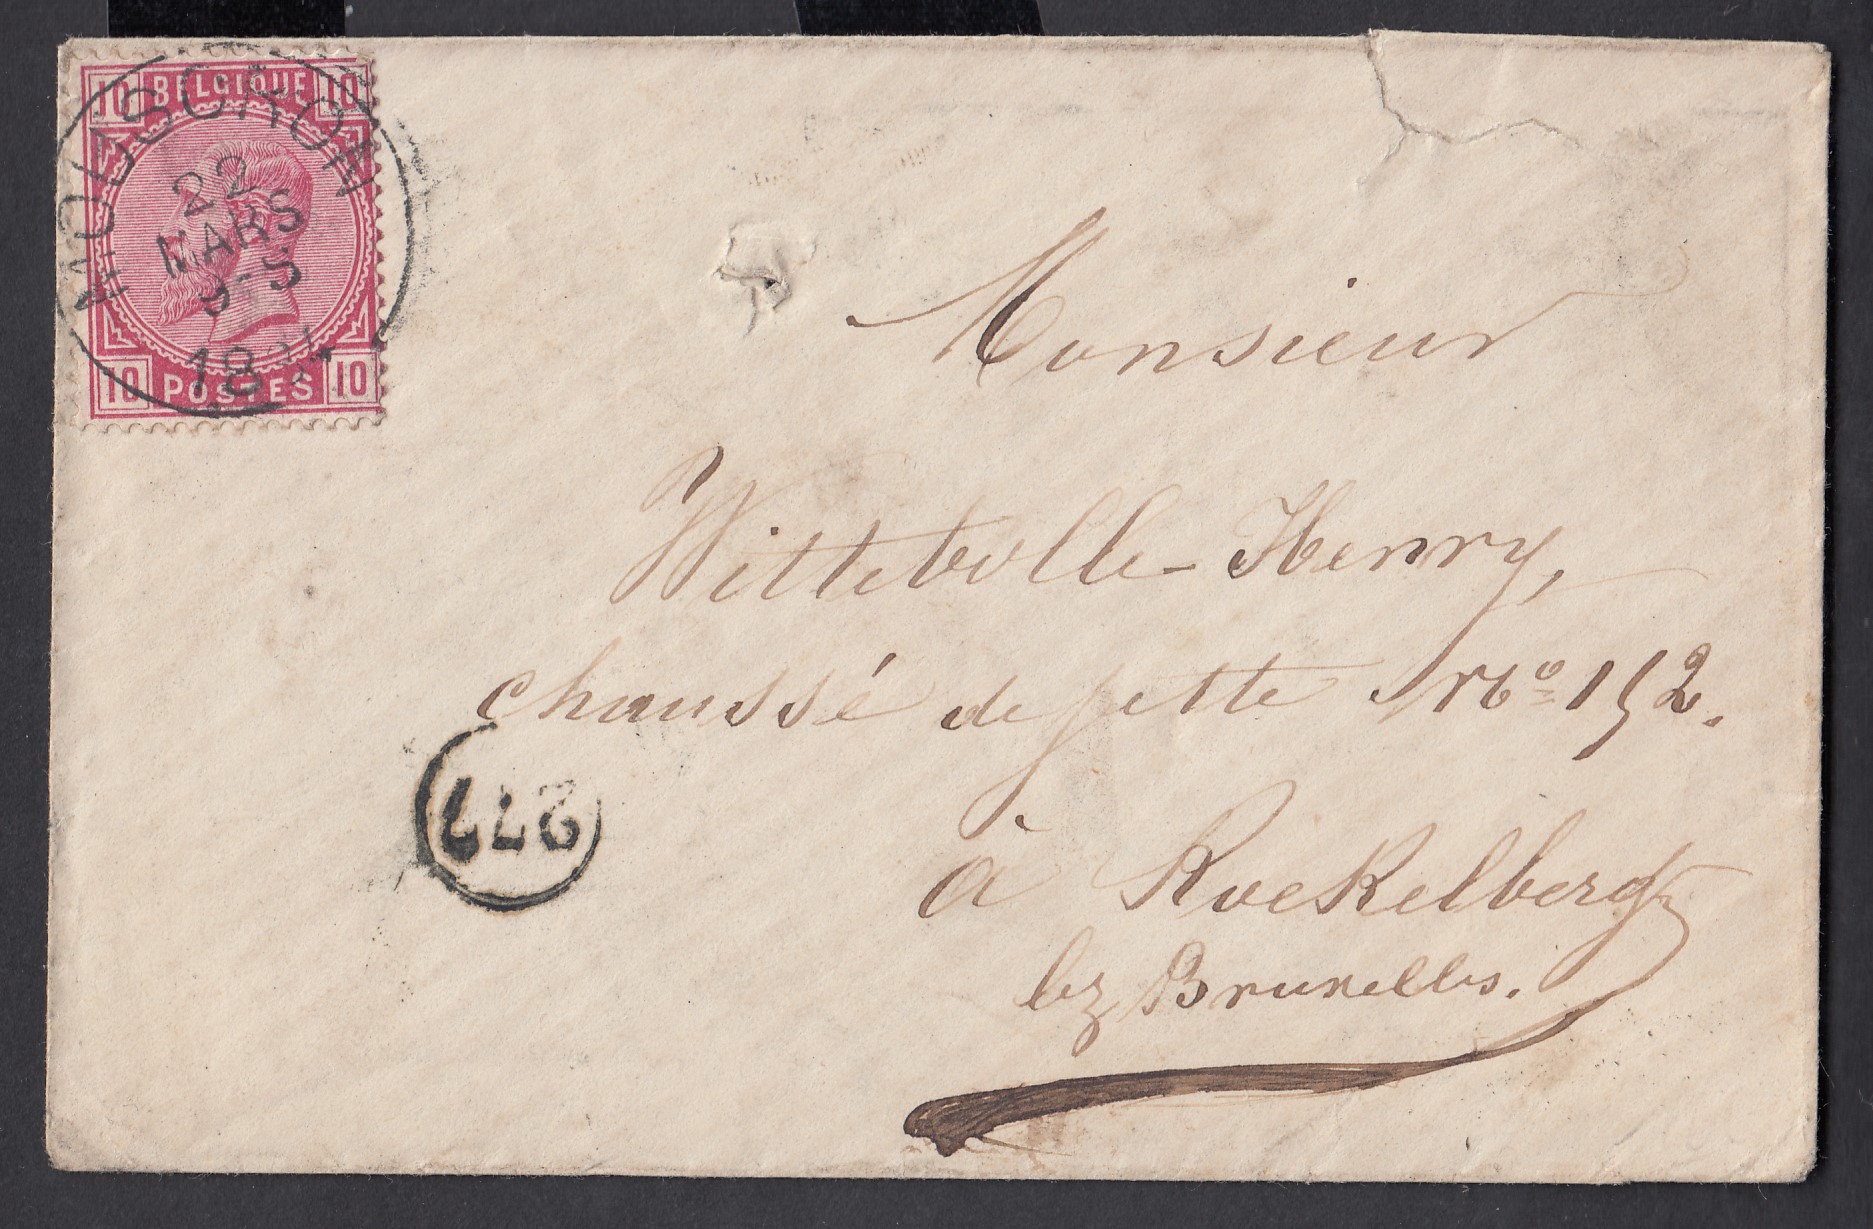 10 BELGIQUE 10
MOUSCRON
22
MARS
9-S
18
10 POSTES 10
Monsieur
Wittebolle-Henry,
chaussé de jette No 152.
à Koekelberg
lez Bruxelles.
277